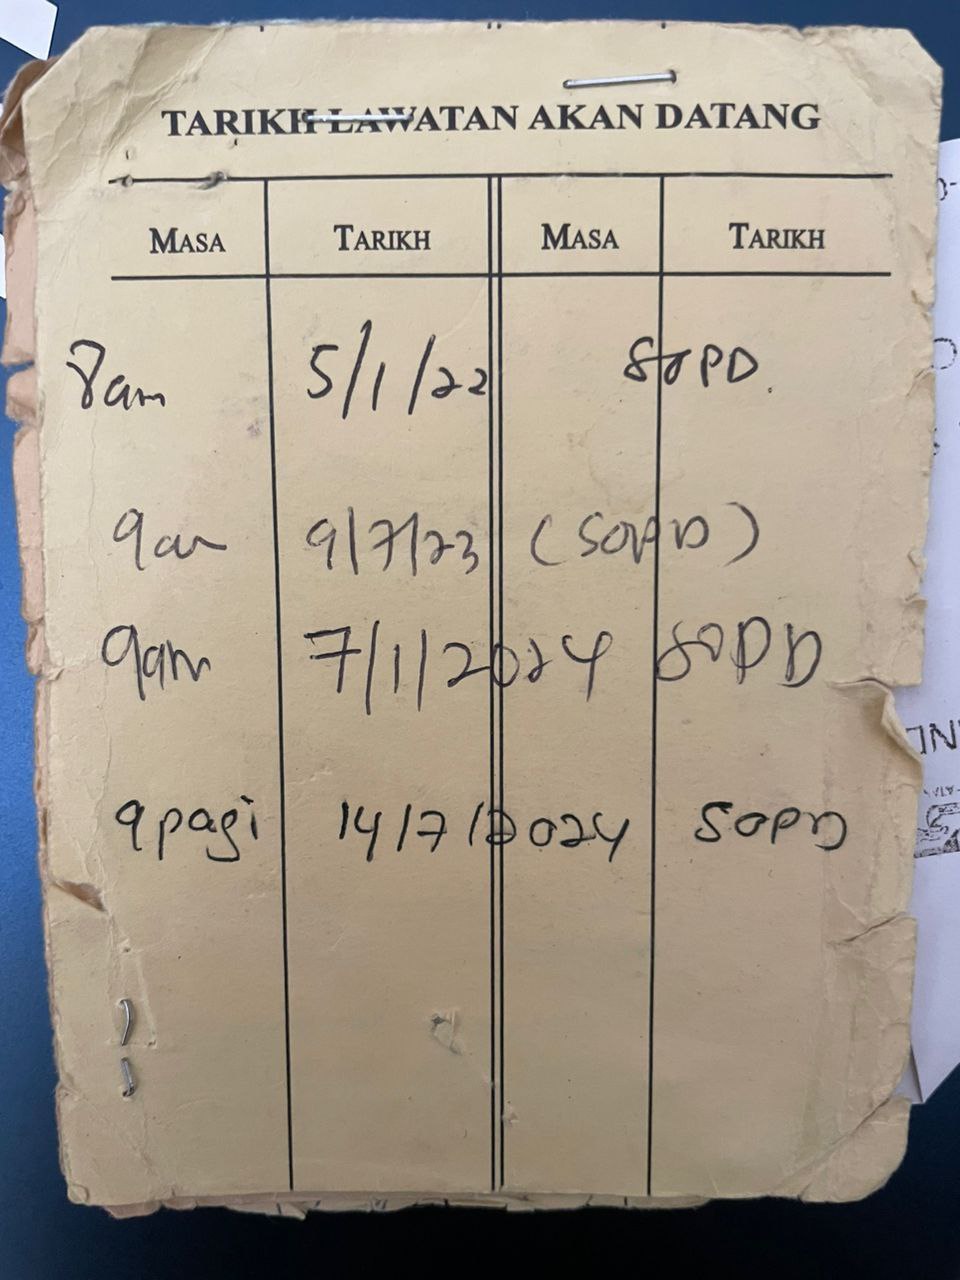 TARIKH LAWATAN AKAN DATANG
MASA TARIKH MASA TARIKH
8am 5/1/22 SOPD.
9am 9/7/23 (SOPD)
9am 7/1/2024 SOPD
9 pagi 14/7/2024 SOPD